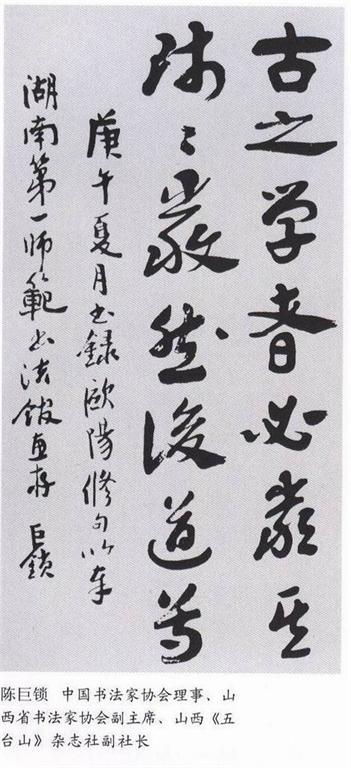 古之学者必嚴其
师〻嚴然後道尊
庚午夏月书録歐陽修句以奉
湖南第一师範书法館惠存 巨鎖
陈巨锁 中国书法家协会理事、山
西省书法家协会副主席、山西《五
台山》杂志社副社长